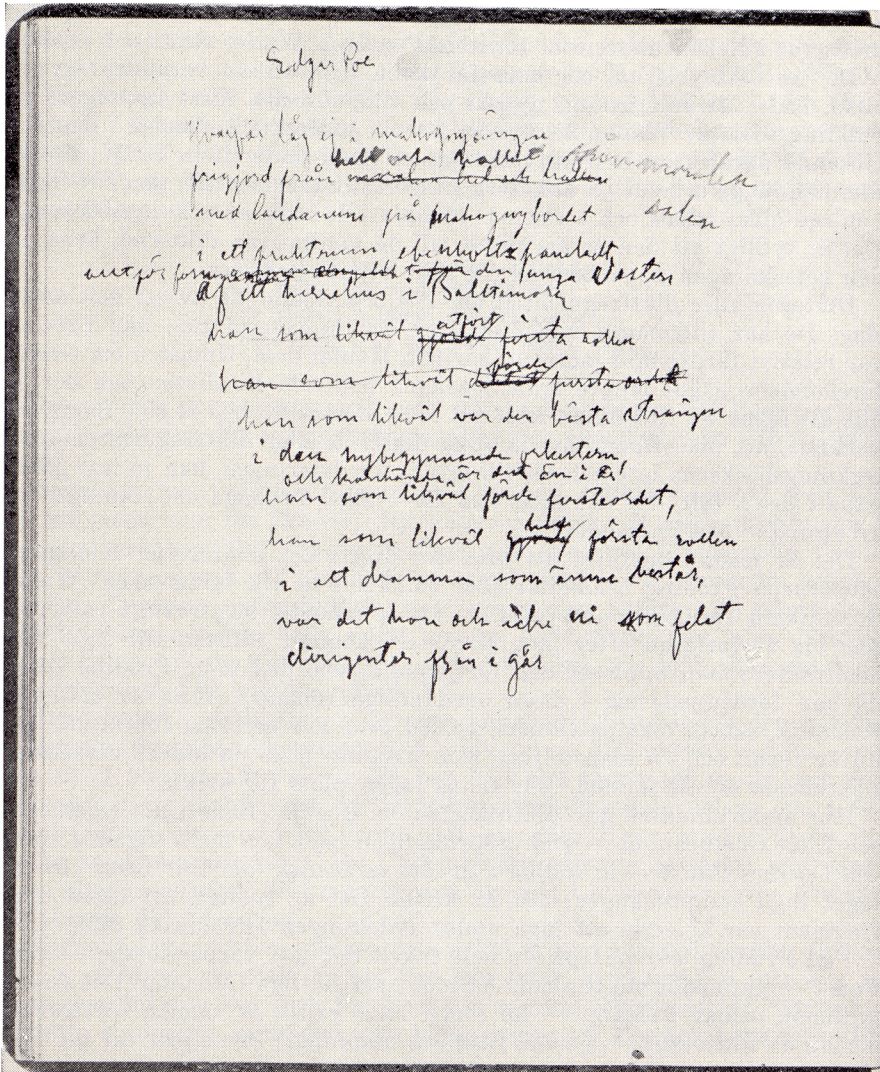 Edgar Poe
Hvarför låg ej i mahognysängen
helt och hållet, spon moralen
frigjord från moralen hel och hållen
med laudanum på mahognybordet salen
i ett praktrum ebenholtzpaneladt
den unga Västern
af ett herrehus i Baltimore
utfört
han som likväl gjorde första rollen
förde
han som likväl första ordet
han som likväl var den bästa strängen
i den nybegynnande orkestern,
och kanhända är det än i
han som likväl förde första ordet,
hade
han som likväl gjorde första rollen
i ett drama som ännu består,
var det han och icke ni som felat
dirigenter från i går